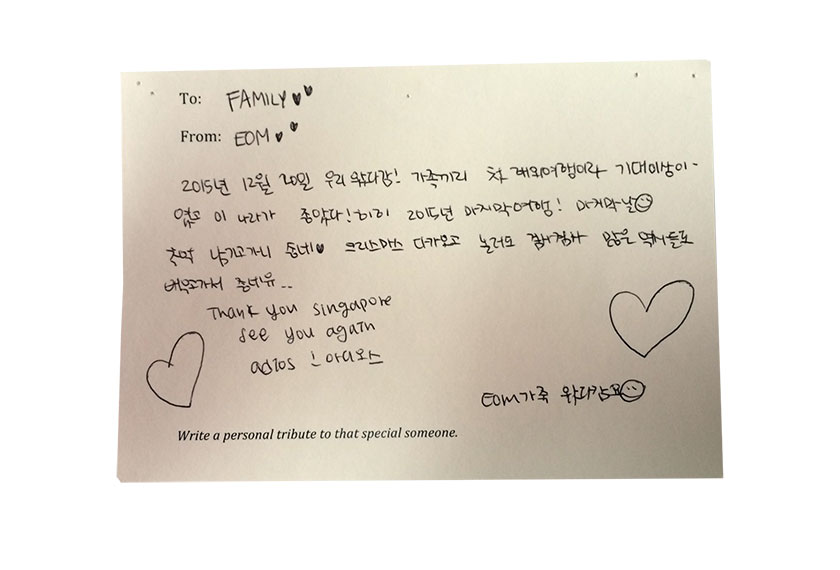 To: FAMILY
From: EOM
2015년 12월 20일 우리 왔다감! 가족끼리 첫 해외여행이라 기대이상이
였고 이 나라가 좋았다! 2015년 마지막여행! 마지막날
추억 남기고가니 좋네 크리스마스 다가오고 놀러도 겸사겸사 많은 역사들도
배우고가서 좋네유..
Thank you singapore
see you again
adios ! 아디오스
EOM가족 왔다감요
Write a personal tribute to that special someone.